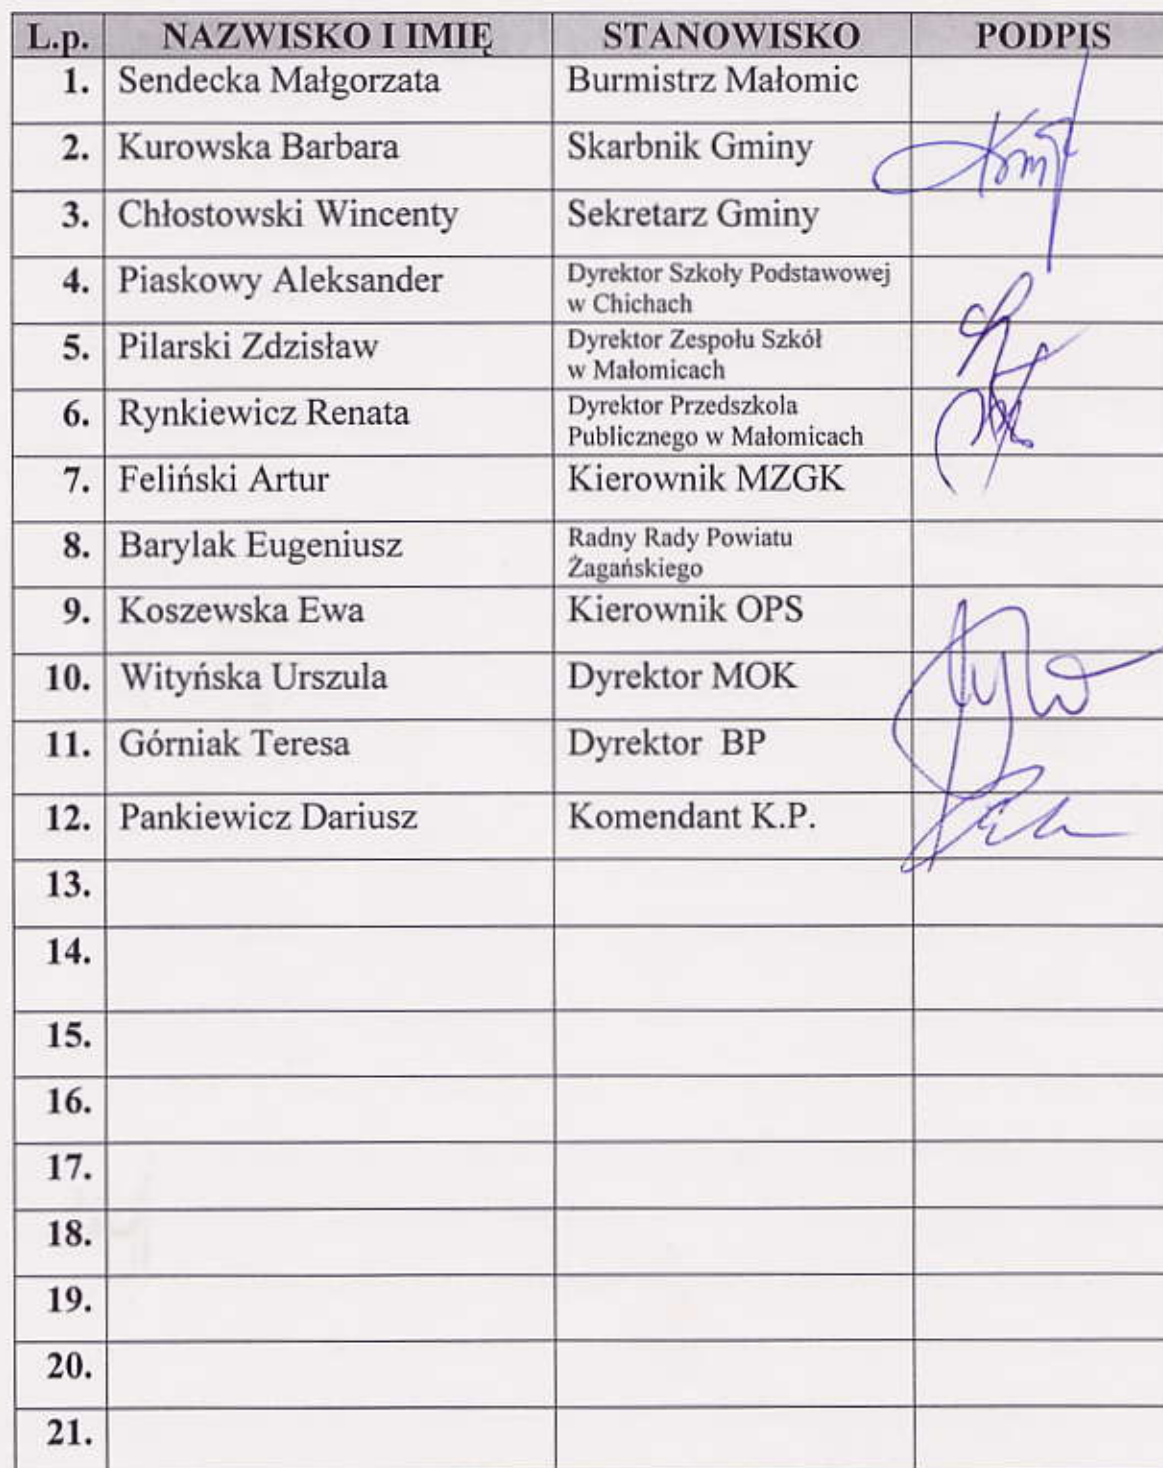 L.p. NAZWISKO I IMIĘ STANOWISKO PODPIS
1. Sendecka Małgorzata Burmistrz Małomic
2. Kurowska Barbara Skarbnik Gminy
3. Chłostowski Wincenty Sekretarz Gminy
4. Piaskowy Aleksander Dyrektor Szkoły Podstawowej
w Chichach
5. Pilarski Zdzisław Dyrektor Zespołu Szkół
w Małomicach
6. Rynkiewicz Renata Dyrektor Przedszkola
Publicznego w Małomicach
7. Feliński Artur Kierownik MZGK
8. Barylak Eugeniusz Radny Rady Powiatu
Żagańskiego
9. Koszewska Ewa Kierownik OPS
10. Wityńska Urszula Dyrektor MOK
11. Górniak Teresa Dyrektor BP
12. Pankiewicz Dariusz Komendant K.P.
13.
14.
15.
16.
17.
18.
19.
20.
21.